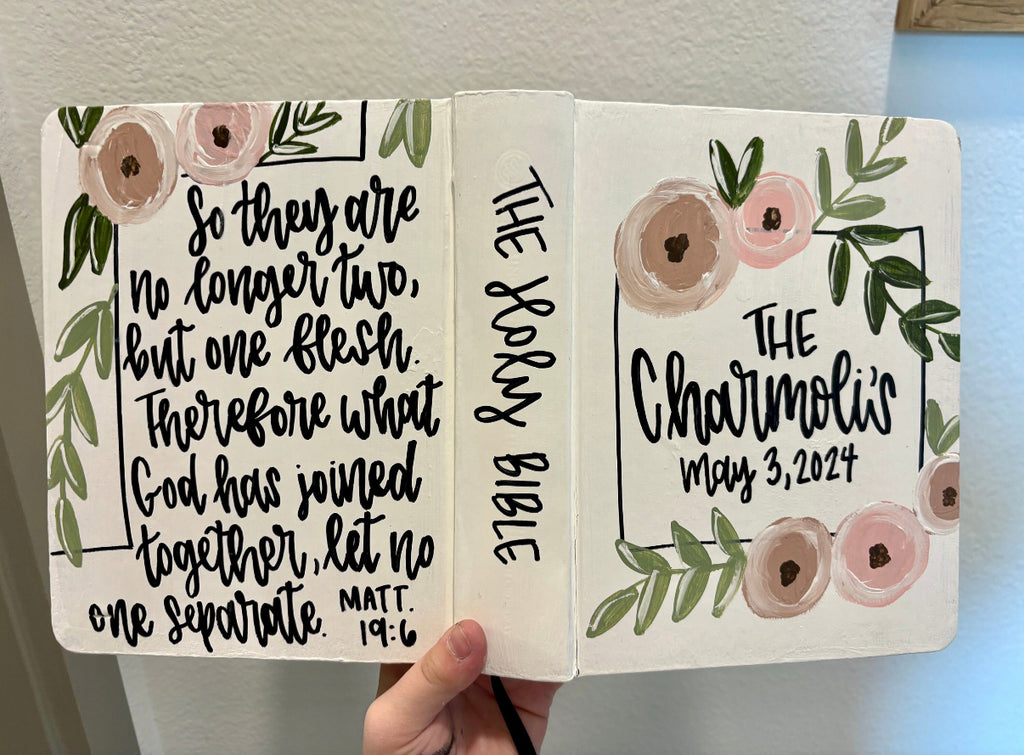 So they are
no longer two,
but one flesh.
Therefore what
God has joined
together, let no
one separate. MATT.
19:6
THE Holy BIBLE
THE
Charmoli's
May 3, 2024